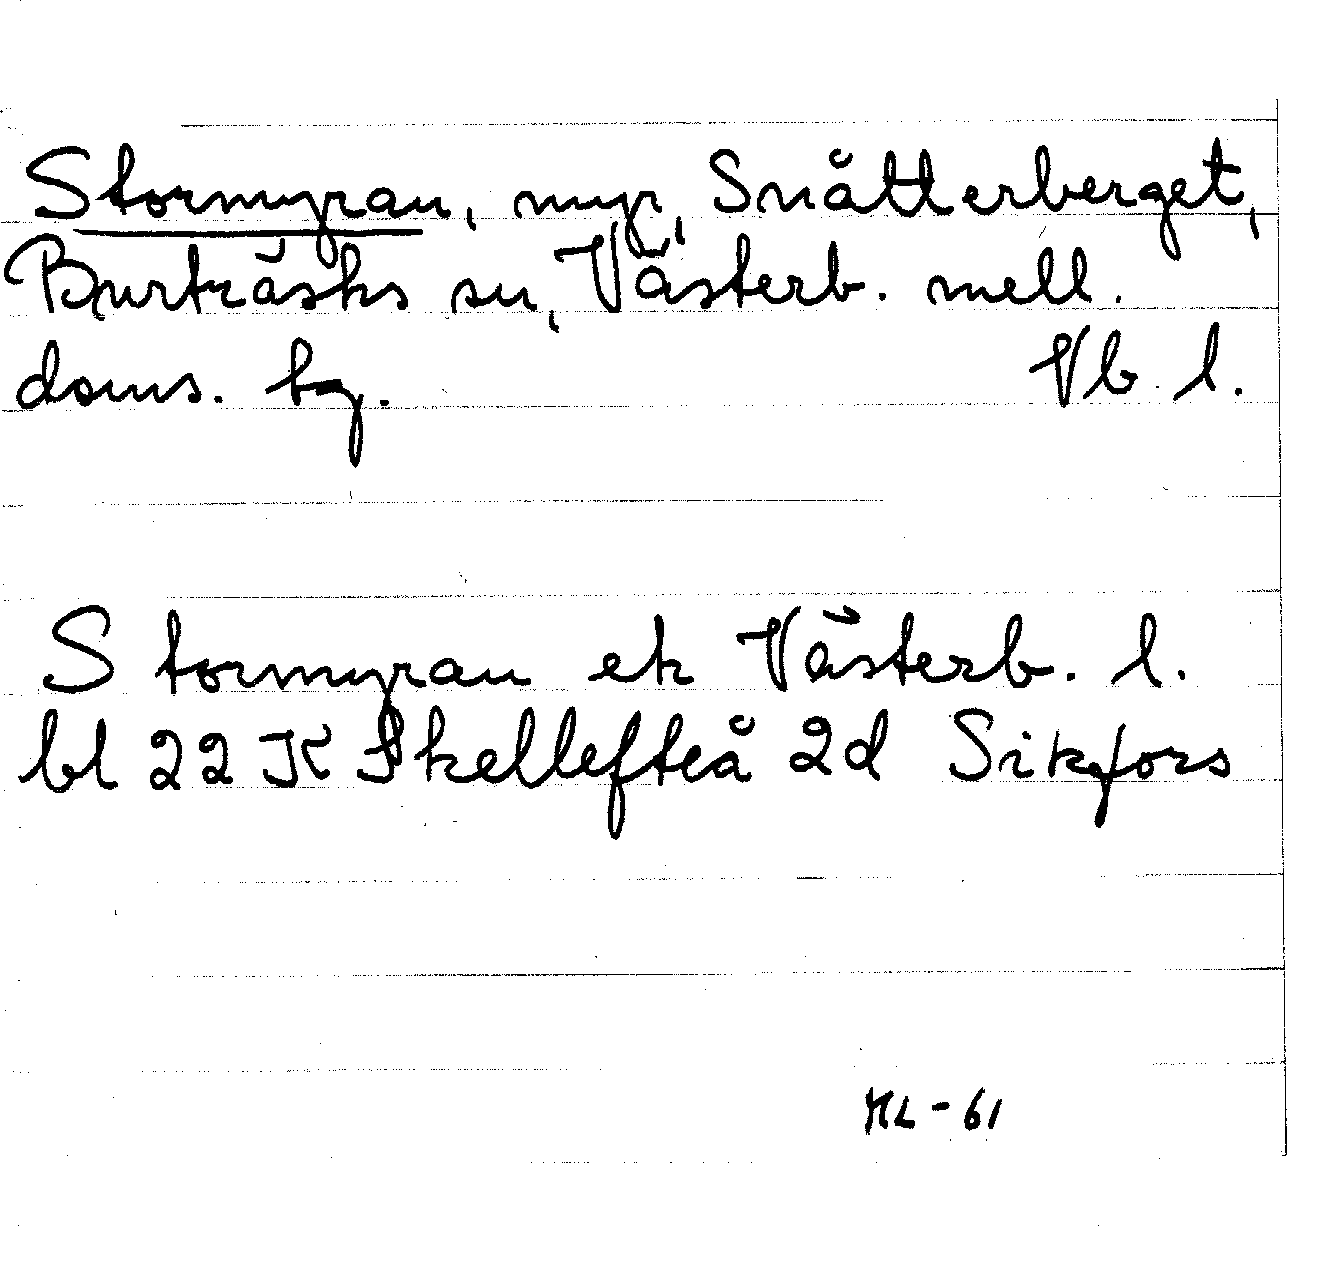 Stormyran, myr, Snåtterberget,
Burträsks sn, Västerb. mell.
doms. hg. Vb l.
Stormyran ek Västerb. l.
bl 22 K Skellefteå 2d Sikfors
ML-61